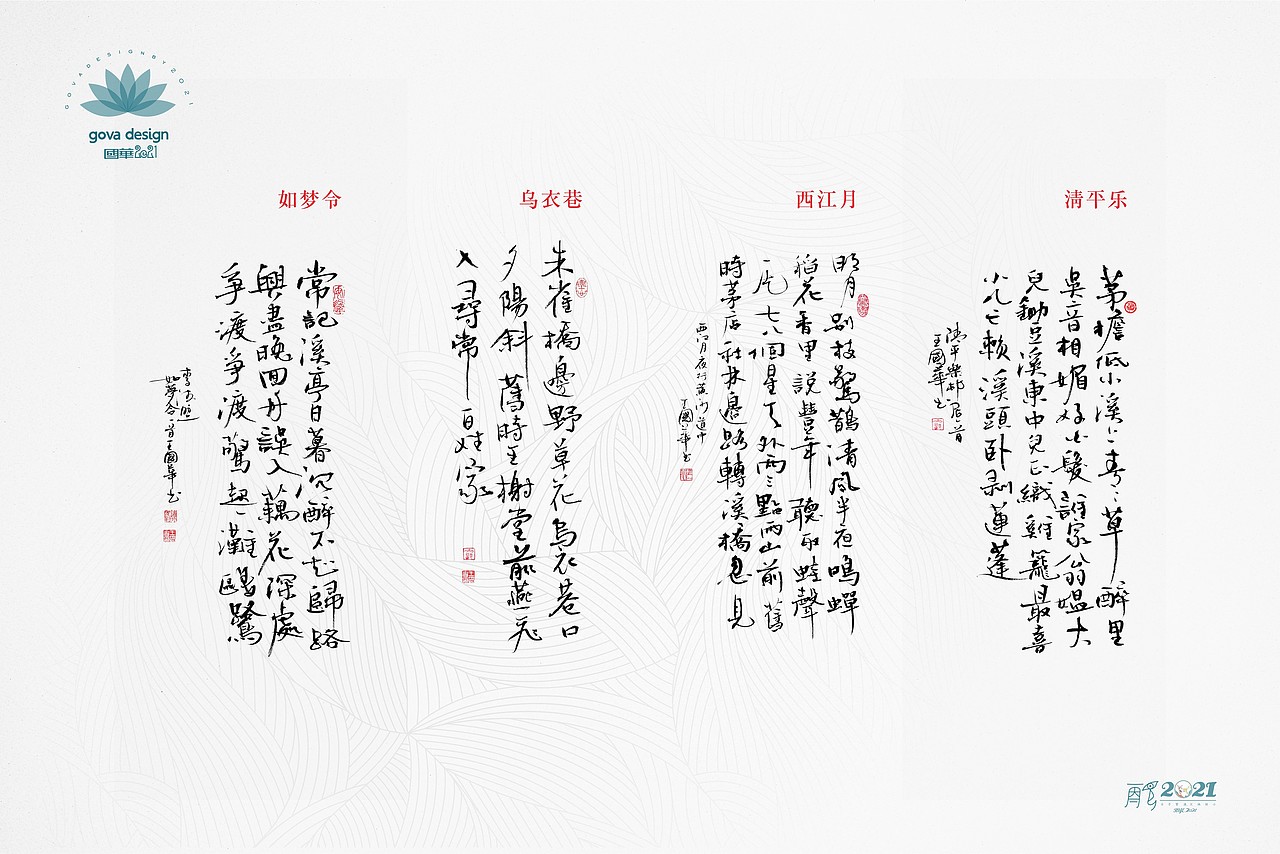 GOVADESIGNBY2021
gova design
國華2021
清平乐
茅檐低小溪上青青草醉里
吳音相媚好白髮誰家翁媼大
兒鋤豆溪東中兒正織雞籠最喜
小兒亡賴溪頭卧剥蓮蓬
清平樂村居一首
王國華书
西江月
明月别枝驚鵲清風半夜鳴蟬
稻花香里說豐年聽取蛙聲
一片七八個星天外兩三點雨山前舊
時茅店社林邊路轉溪橋忽見
西江月夜行黄沙道中
王國華书
乌衣巷
朱雀橋邊野草花烏衣巷口
夕陽斜舊時王榭堂前燕飛
入尋常百姓家
如梦令
常記溪亭日暮沉醉不知歸路
興盡晚回舟誤入藕花深處
爭渡爭渡驚起一灘鷗鷺
李清照
如夢令一首王國華书
2021